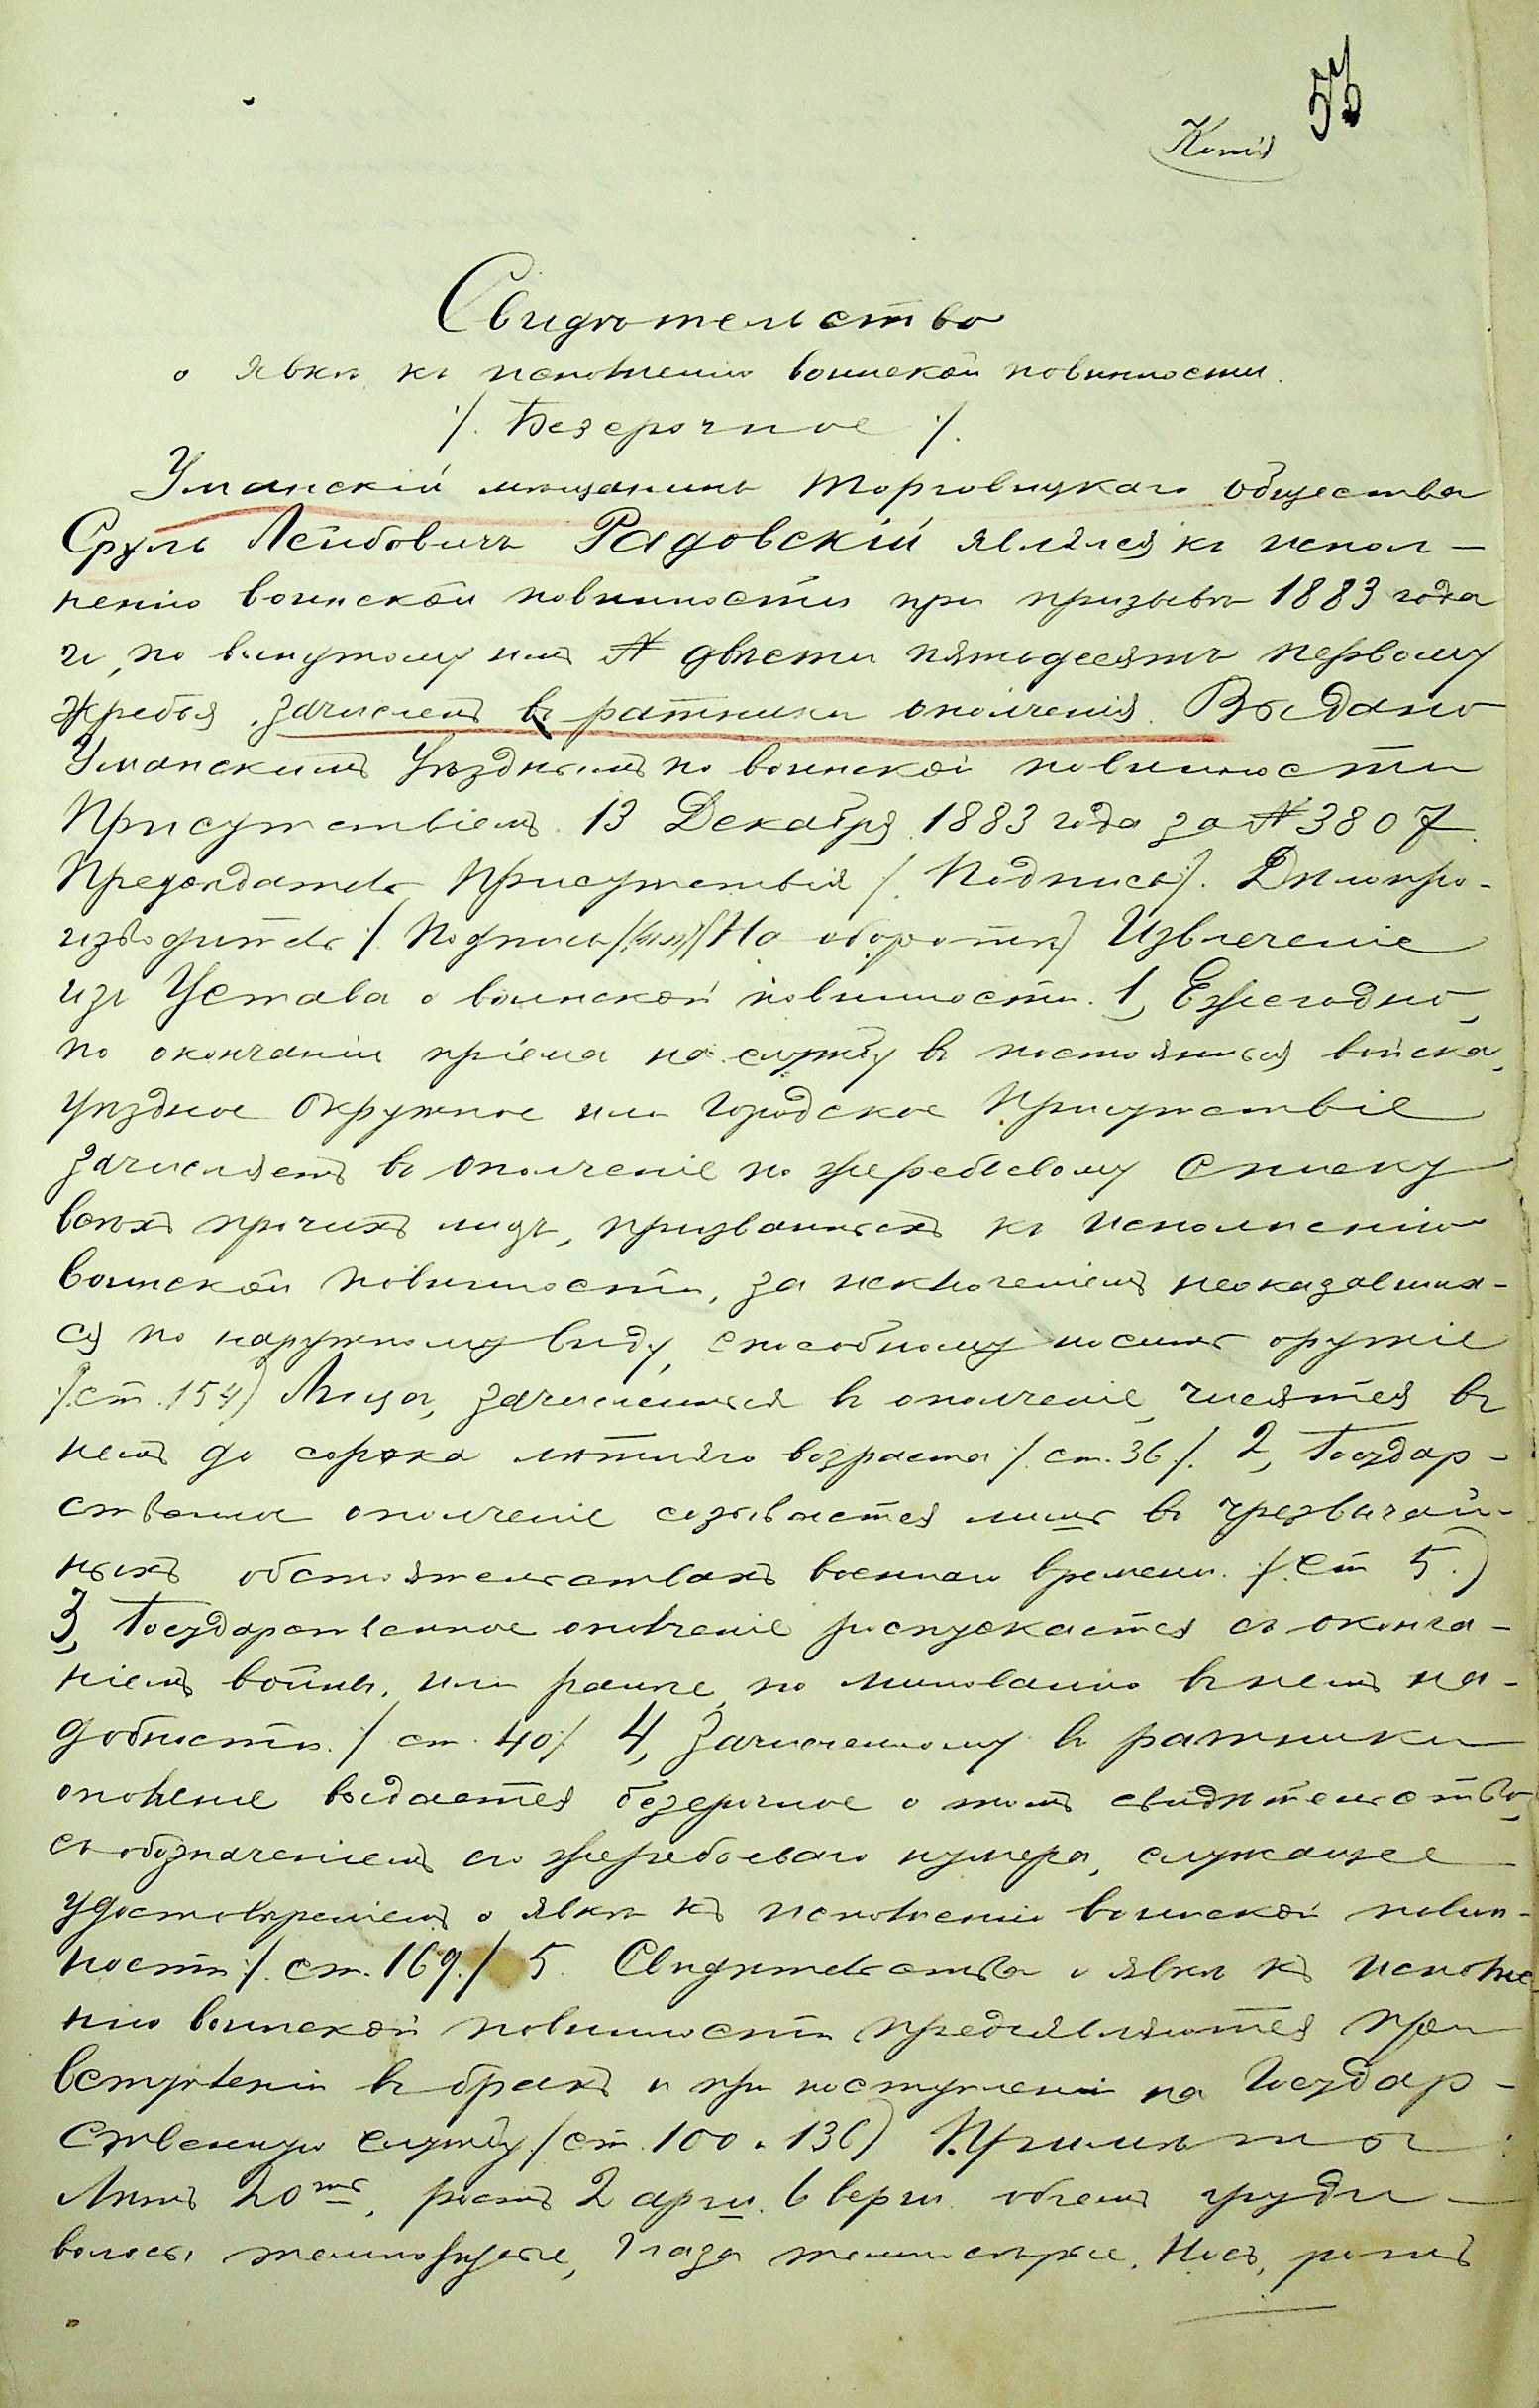 53
Копія
Свидѣтельство
о явкѣ къ исполненію воинской повинности.
/. Безсрочное /.
Уманскій мѣщанинъ Торговицкаго общества
Сруль Лейбовичъ Радовскій являлся къ испол-
ненію воинской повинности при призывѣ 1883 года
и, по вынутому имъ № двѣсти пятьдесятъ первому
жребія, зачисленъ въ ратники ополченія. Выдано
Уманскимъ Уѣзднымъ по воинской повинности
Присутствіемъ 13 Декабря 1883 года за № 3807.
Предсѣдатель Присутствія /. Подпись/. Дѣлопро-
изводитель /. Подпись / (На оборотѣ) Извлеченіе
изъ Устава о воинской повинности. 1, Ежегодно,
по окончаніи пріема на службу въ постоянныя войска,
уѣздное Окружное или Городское Присутствіе
зачисляетъ въ ополченіе по жеребьевому списку
всѣхъ прочихъ лицъ, призванныхъ къ исполненію
воинской повинности, за исключеніемъ неоказавших-
ся по наружному виду, способному носить оружіе
/.ст. 154) Лица, зачисленныя въ ополченіе, числятся въ
немъ до сорока лѣтняго возраста /. ст. 36 /. 2, Государ-
ственное ополченіе созывается лишь въ чрезвычай-
ныхъ обстоятельствахъ военнаго времени. /. Ст 5.)
3, Государственное ополченіе распускается съ оконча-
ніемъ войны, или ранѣе, по минованію въ немъ на-
добности. / ст. 40 /. 4, Зачисленному въ ратники
ополченіе выдается безсрочное о томъ свидѣтельство,
съ обозначеніемъ его жеребьеваго нумера, служащее
удостовѣреніемъ о явкѣ къ исполненію воинской повин-
ности /. ст. 169. / 5. Свидѣтельства о явкѣ къ исполне-
нію воинской повинности предъявляются при
вступленіи въ бракъ и при поступленіи на Государ-
ственную службу /. ст. 100 и 136) Примѣты:
Лѣтъ 20ть, ростъ 2 арш. 6 верш. объемъ груди —
волосы темнорусые, глаза темносѣрые, носъ, ротъ